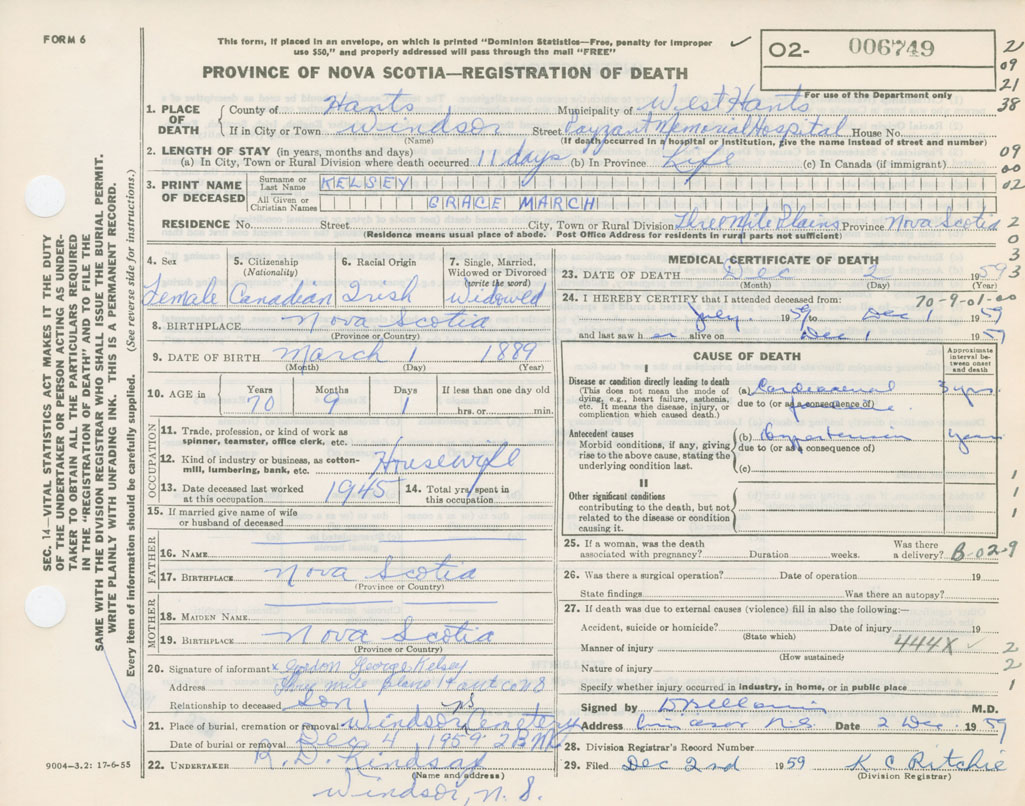 FORM 6
This form, if placed in an envelope, on which is printed "Dominion Statistics—Free, penalty for improper
use $50," and properly addressed will pass through the mail "FREE"
02- 006749
For use of the Department only
21
09
21
38
PROVINCE OF NOVA SCOTIA—REGISTRATION OF DEATH
1. PLACE OF DEATH
County of Hants Municipality of West Hants
If in City or Town Windsor Street Payzant Memorial Hospital House No.
(Name) (If death occurred in a hospital or institution, give the name instead of street and number)
2. LENGTH OF STAY (in years, months and days)
(a) In City, Town or Rural Division where death occurred 11 days (b) In Province Life (c) In Canada (if immigrant)
09
00
02
3. PRINT NAME OF DECEASED
Surname or Last Name KELSEY
All Given or Christian Names GRACE MARCH
RESIDENCE No. Street City, Town or Rural Division Three Mile Plains Province Nova Scotia
(Residence means usual place of abode. Post Office Address for residents in rural parts not sufficient)
2
0
3
3
SEC. 14—VITAL STATISTICS ACT MAKES IT THE DUTY
OF THE UNDERTAKER OR PERSON ACTING AS UNDER-
TAKER TO OBTAIN ALL THE PARTICULARS REQUIRED
IN THE "REGISTRATION OF DEATH" AND TO FILE THE
SAME WITH THE DIVISION REGISTRAR WHO SHALL ISSUE THE BURIAL PERMIT.
WRITE PLAINLY WITH UNFADING INK. THIS IS A PERMANENT RECORD.
Every item of information should be carefully supplied. (See reverse side for instructions.)
4. Sex
Female
5. Citizenship
(Nationality)
Canadian
6. Racial Origin
Irish
7. Single, Married,
Widowed or Divorced
(write the word)
Widowed
8. BIRTHPLACE Nova Scotia
(Province or Country)
9. DATE OF BIRTH March 1 1889
(Month) (Day) (Year)
10. AGE in
Years 70
Months 9
Days 1
If less than one day old
hrs. or min.
OCCUPATION
11. Trade, profession, or kind of work as
spinner, teamster, office clerk, etc.
12. Kind of industry or business, as cotton-
mill, lumbering, bank, etc. Housewife
13. Date deceased last worked
at this occupation 1945
14. Total yrs. spent in
this occupation
15. If married give name of wife
or husband of deceased
FATHER
16. NAME
17. BIRTHPLACE Nova Scotia
(Province or Country)
MOTHER
18. MAIDEN NAME
19. BIRTHPLACE Nova Scotia
(Province or Country)
20. Signature of informant x Gordon George Kelsey
Address
Relationship to deceased Son
21. Place of burial, cremation or removal Windsor Cemetery
Date of burial or removal Dec 4 1959
22. UNDERTAKER
(Name and address)
Windsor, N. S.
9004-3.2: 17-6-55
MEDICAL CERTIFICATE OF DEATH
23. DATE OF DEATH Dec 2 1959
(Month) (Day) (Year)
24. I HEREBY CERTIFY that I attended deceased from: 70-9-01-00
July 1959 to Dec 1 1959
and last saw her alive on Dec 1 1959
CAUSE OF DEATH
Approximate
interval be-
tween onset
and death
I
Disease or condition directly leading to death
(This does not mean the mode of
dying, e.g., heart failure, asthenia,
etc. It means the disease, injury, or
complication which caused death.)
(a) 3 yrs
due to (or as a consequence of)
Antecedent causes
Morbid conditions, if any, giving
rise to the above cause, stating the
underlying condition last.
(b) Hypertension years
due to (or as a consequence of)
(c)
II
Other significant conditions
contributing to the death, but not
related to the disease or condition
causing it.
1
1
1
25. If a woman, was the death
associated with pregnancy? Duration weeks. Was there
a delivery? B-02-9
26. Was there a surgical operation? Date of operation 19
State findings Was there an autopsy?
27. If death was due to external causes (violence) fill in also the following:—
Accident, suicide or homicide? Date of injury 19
(State which)
Manner of injury 444X
(How sustained)
Nature of injury
Specify whether injury occurred in industry, in home, or in public place
2
2
1
Signed by M.D.
Address Windsor N.S. Date 2 Dec. 1959
28. Division Registrar's Record Number
29. Filed Dec 2nd 1959 K C Ritchie
(Division Registrar)